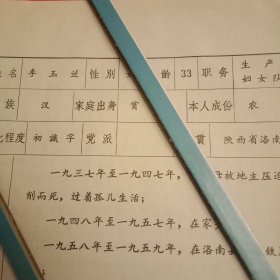 名 李玉兰 性别 龄 33 职务 生产
妇女队
族 汉 家庭出身 贫 本人成份 农
化程度 初识字 党派 贯 陕西省洛南
一九三七年至一九四七年， 被地主压迫
削而死，过着孤儿生活；
一九四八年至一九五七年，在家
一九五八年至一九五九年，在洛南县
；